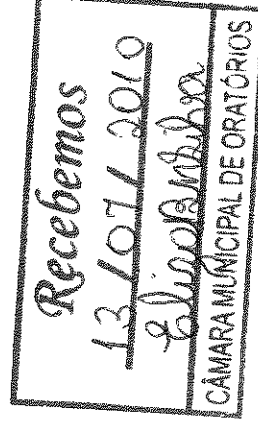 Recebemos
13/07/2010
CÂMARA MUNICIPAL DE ORATÓRIOS